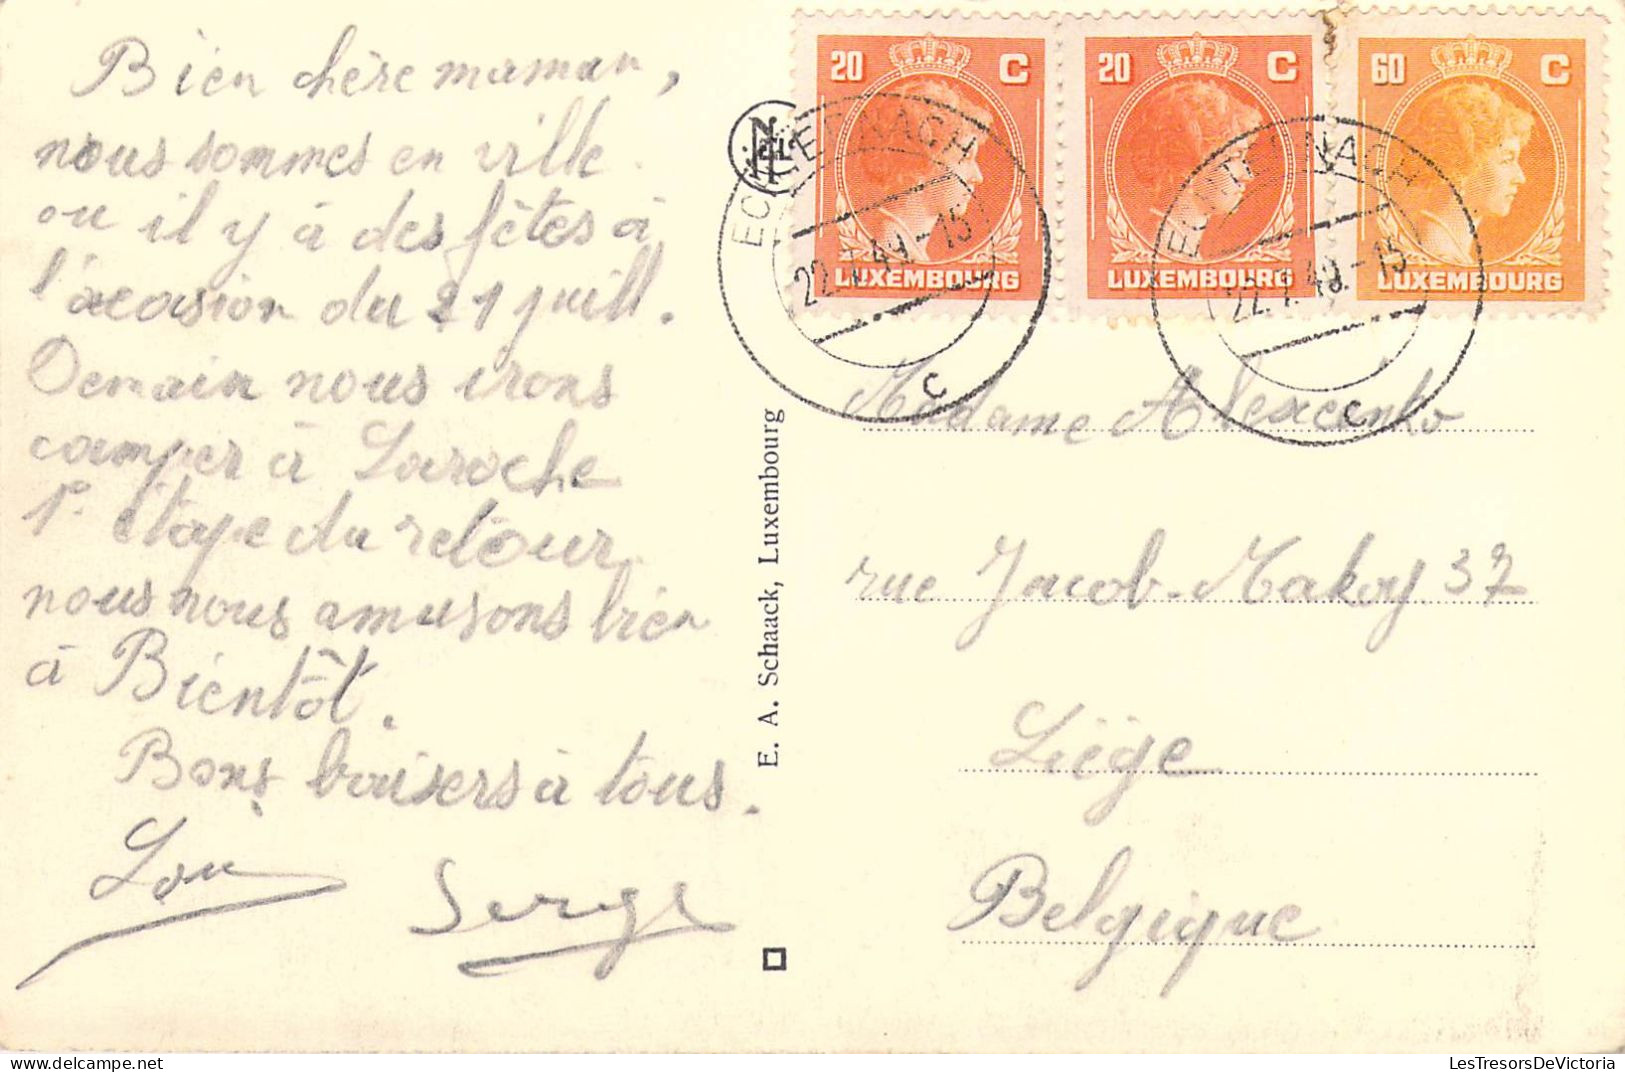 Bien chère maman,
nous sommes en ville
ou il y à des fêtes à
l'accasion du 21 juill.
Demain nous irons
camper à Laroche
1e étape du retour
nous nous amusons bien
à Bientôt.
Bons baisers à tous.
Lou
Serge
E. A. Schaack, Luxembourg
20 C
LUXEMBOURG
20 C
LUXEMBOURG
60 C
LUXEMBOURG
ECHTERNACH
22.7.49.-15
C
ECHTERNACH
22.7.49.-15
C
Madame Alexcenko
rue Jacob-Makoy 37
Liège
Belgique
LesTresorsDeVictoria